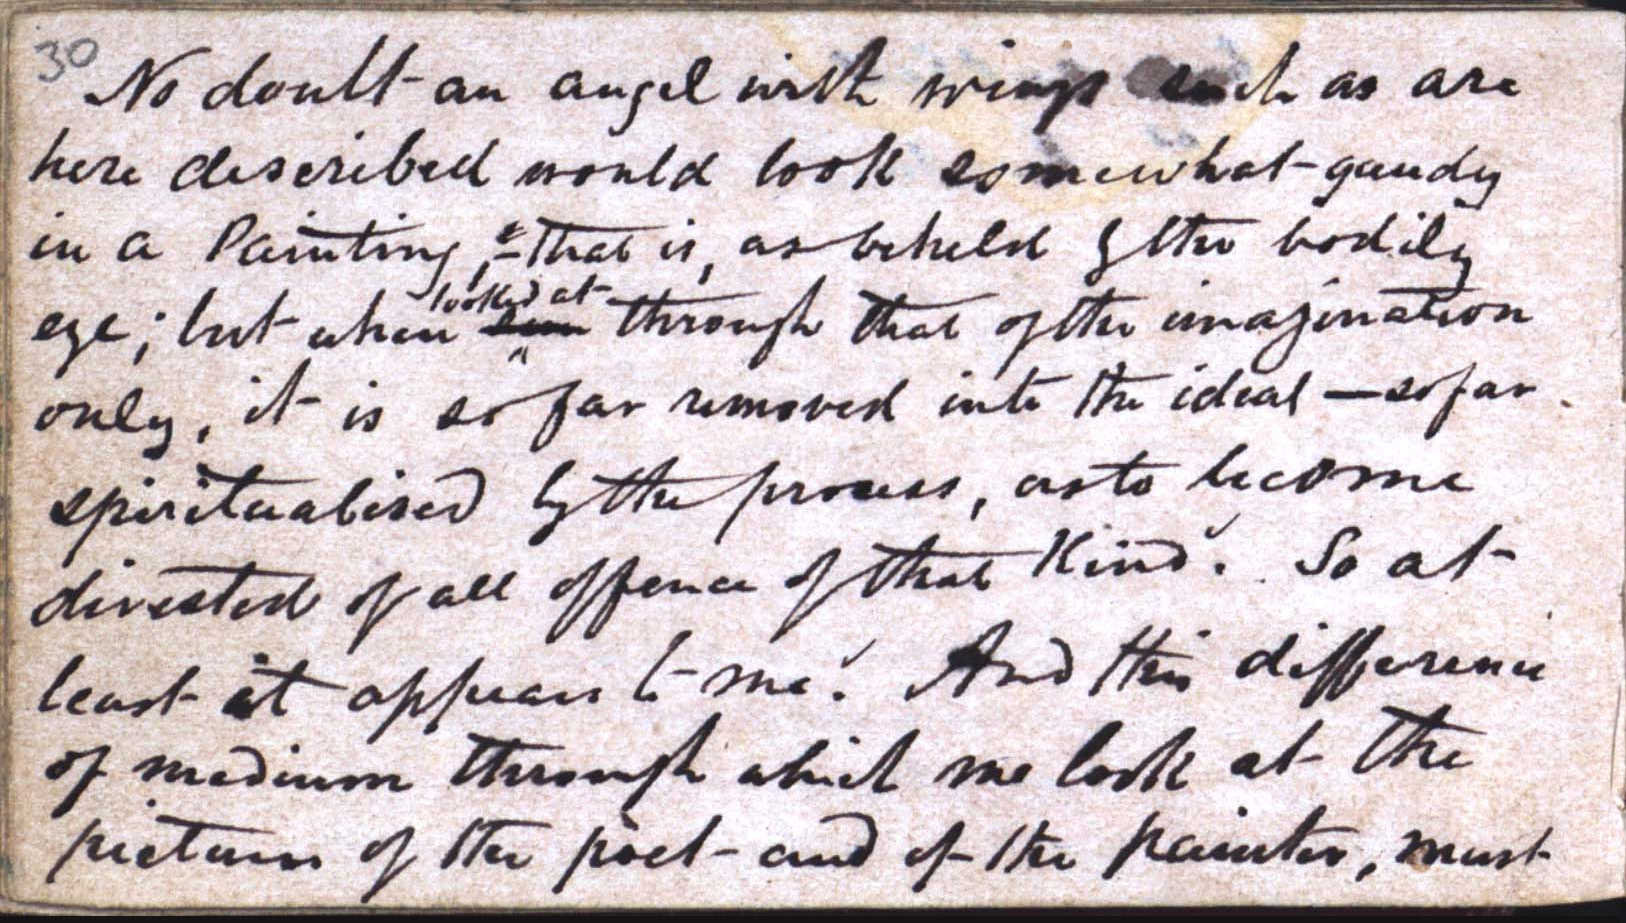 30
No doubt an angel with wings such as are
here described would look somewhat gaudy
in a Painting, & that is, as beheld by the bodily
looked at
eye; but when seen through that of the imagination
only, it is so far removed into the ideal — so far
spiritualised by the process, as to become
divested of all offence of that kind. So at
least it appears to me. And this difference
of medium through which we look at the
pictures of the poet and of the painter, must